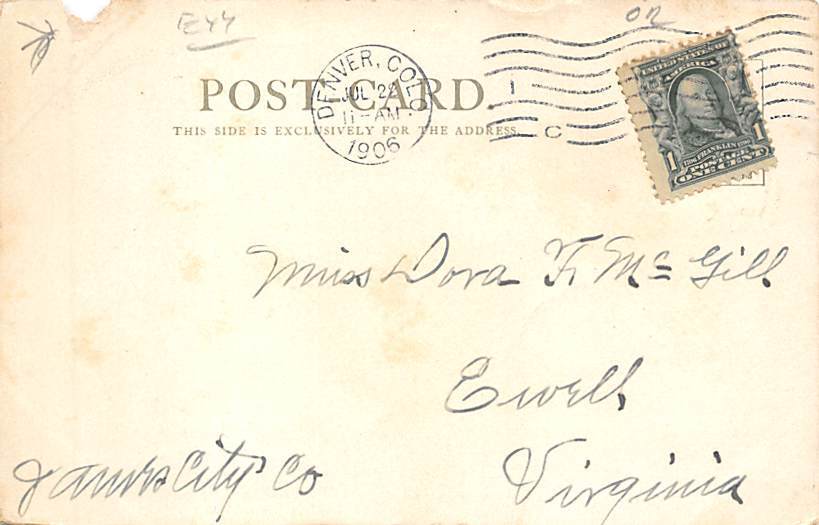 E44
on
POST CARD.
THIS SIDE IS EXCLUSIVELY FOR THE ADDRESS.
DENVER, COLO.
JUL 22
11-AM
1906
1
C
UNITED STATES OF
AMERICA
1 FRANKLIN 1
POSTAGE
ONE CENT
Miss Dora F. Mc Gill
Ewell
Virginia
James City Co